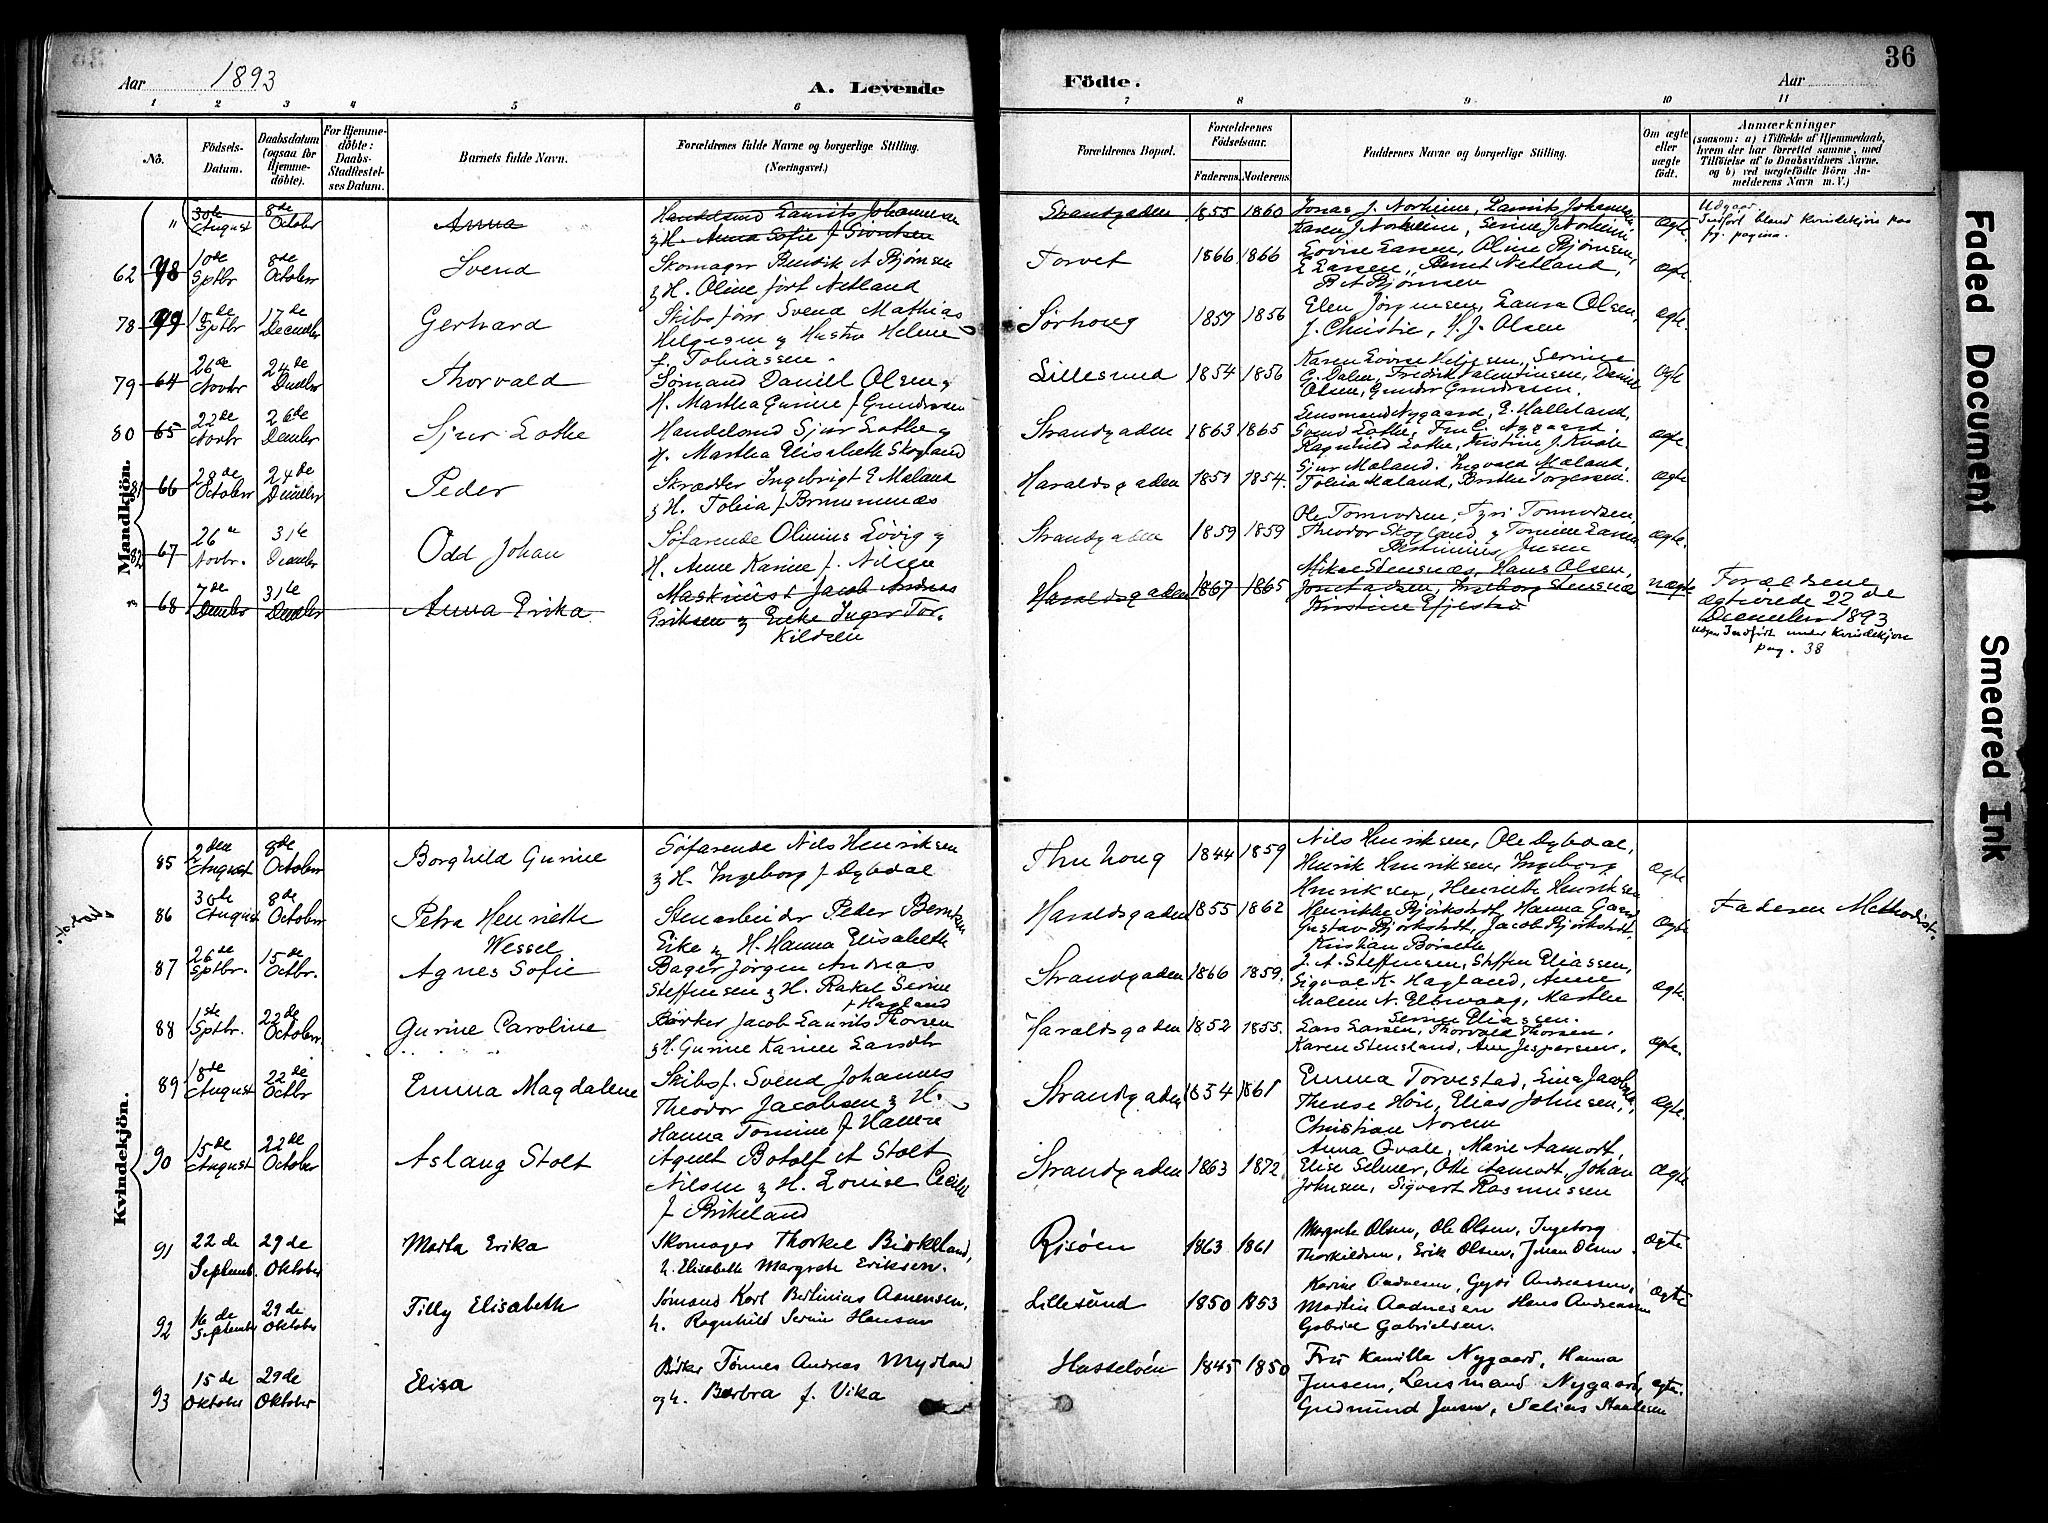 36
Aar 1893
A. Levende
Födte.
Aar
1 2 3 4 5 6 7 8 9 10 11
No.
Födsels-Datum.
Daabsdatum (ogsaa för Hjemme-döbte).
For Hjemme-döbte: Daabs-Stadfæstel-ses Datum.
Barnets fulde Navn.
Forældrenes fulde Navne og borgerlige Stilling. (Næringsvei.)
Forældrenes Bopæl.
Forældrenes Födselsaar.
Faderens. Moderens.
Faddernes Navne og borgerlige Stilling.
Om ægte eller uægte födt.
Anmærkninger
(saasom: a) i Tilfælde af Hjemmedaab, hvem der har forrettet samme, med Tilföielse af to Daabsvidners Navne, og b) ved uægtefödte Börn An-melderens Navn m. V.)
Mandkjön.
" 30de August 8de October Anna Handelsmd Laurits Johannesen
& H. Anna Sofie f. Strandgaden 1855 1860 Jonas J. Norheim, Laurits Johannesen,
Karen J. Norheim, Serine J. Norheim ægte. Udgaar. Indført bland Kvindekjøn paa pagina.
62 78 10de Sptbr 8de October Svend Skomager Bendik A Bjørnsen
& H. Oline født Netland Torvet 1866 1866 Lovise Larsen, Oline Bjørnsen,
E Larsen, Bernt Netland, Bjørnsen ægte
78 79 15de Sptbr 17de Decembr Gerhard Skibsfører Svend Mathias
Helgesen & Hustru Helene
f. Tobiassen. Sørhoug 1857 1856 Elen Jørgensen, Laura Olsen,
J. Christie, J. Olsen ægte.
79 64 26de Novbr 24de Decmbr Thorvald Sømand Daniel Olsen &
H. Martha Gurine f Gundersen Lillesund 1854 1856 Karen Lovise Nilsen, Serine
G. Dalen, Fredrik Valentinsen, Daniel
Olsen, Gunder Gundersen. ægte
80 65 22de Novbr 26de Decmbr Sjur Lothe Handelsmd Sjur Lothe &
H. Martha Elisabeth Skogland Strandgaden 1863 1865 Lensmand Nygaard, E. Halleland,
Svend Lothe, Fru C. Nygaard.
Ragnhild Lothe, Kristine J. ægte.
81 66 28de October 24de Decmbr Peder Skrædder Ingebrigt E Mæland
& H. Tobia f Brummenæs Haraldsgaden 1851 1854. Sjur Mæland. Ingvald Mæland.
Tobia Mæland, Birthe Torgersen. ægte
82 67 26de Novbr. 31te Decmbr Odd Johan Søfarende Olinius Løvig &
H. Anne Karine f. Nilsen Strandgaden 1859 1859 Ole Tonnesen, Tyri Tonnesen,
Theodor Skogland & Tomine Larsen
Bertinius Jensen ægte.
" 68 7de Decmbr 31te Decmbr Anna Erika Maskinist Jacob Andreas
Eriksen & Enke Inger Tor-
kildsen Haraldsgaden 1867 1865 Mikal Stensnæs, Hans Olsen,
Ingeborg Stensnæs uægte Forældrene
ægteviede 22de
December 1893
Indført under Kvindekjøn
pag. 38
Kvindekjön.
85 2den August 8de October Borghild Gurine Søfarende Nils Henriksen
& H. Ingeborg f Dybdal Thuhoug 1844 1859 Nils Henriksen, Ole Dybdal,
Henrik Henriksen, Ingeborg
Henriksen, Henriette Henriksen ægte
86 30de August 8de October Petra Henriette
Wessel Stenarbeider Peder Berntsen
Eike & H. Hanna Elisabeth Haraldsgaden 1855 1862 Henrikke Bjørkstedt, Hanna
Gustav Bjørkstedt, Jacob Bjørkstedt,
Kristian Børseth ægte Faderen Methodist.
87 26de Sptbr. 15de Octbr. Agnes Sofie Bager Jørgen Andreas
Steffensen & H. Rakel Serine
f Hagland Strandgaden 1866 1859. J. A. Steffensen, Steffen Eliassen,
Sigvald K. Hagland, Anne
Malene N. Elbervaag, Marthe
Serine Eliassen. ægte.
88 1ste Sptbr. 22de October Gurine Caroline Bødker Jacob Laurits Thorsen
& H. Gurine Karine Haraldsgaden 1852 1855. Lars Larsen, Thorvald Thorsen.
Karen Stensland, Ane Jespersen, ægte.
89 18de August 22de Octbr Emma Magdalene Skibsf. Svend Johannes
Theodor Jacobsen & H.
Hanna Tomine f. Strandgaden 1854 1861 Emma Torvestad, Lina Jacobsen,
Therese Høie, Elias Johnsen,
Christian Norem ægte.
90 15de August 22de October Aslaug Stolt Agent Botolf A Stolt
Nilsen & H. Louise Cecilie
f Birkeland Strandgaden 1863 1872. Anna Qvale, Marie Aamodt,
Elise Selmer, Otto Aamodt, Johan
Johnsen, Sigvart Rasmussen ægte
91 22de Septemb. 29de Oktober Marta Erika Skomager Thorkel Birkeland,
h. Elisabeth Margrete Eriksen. Risøen 1863 1861 Margrete Olsen, Ole Olsen, Ingeborg
Thorkildsen, Erik Olsen, Johan Olsen ægte
92 16de September 29de Oktober Tilly Elisabeth Sømand Karl Bertinius Aanensen,
h. Ragnhild Serine Hansen Lillesund 1850 1853 Karine Aadnesen, Gyri Andreassen,
Martin Aadnesen Hans Andreasen
Gabriel Gabrielsen. ægte
93 15de Oktober 29de Oktober Elisa Bødker Tønnes Andreas Mydland
og h. Berbra f. Vika Hasseløen 1845 1850 Fru Kamilla Nygaard, Hanna
Jensen, Lensmand Nygaard,
Gudmund Jensen, Staalesen ægte.
Faded Document
Smeared Ink